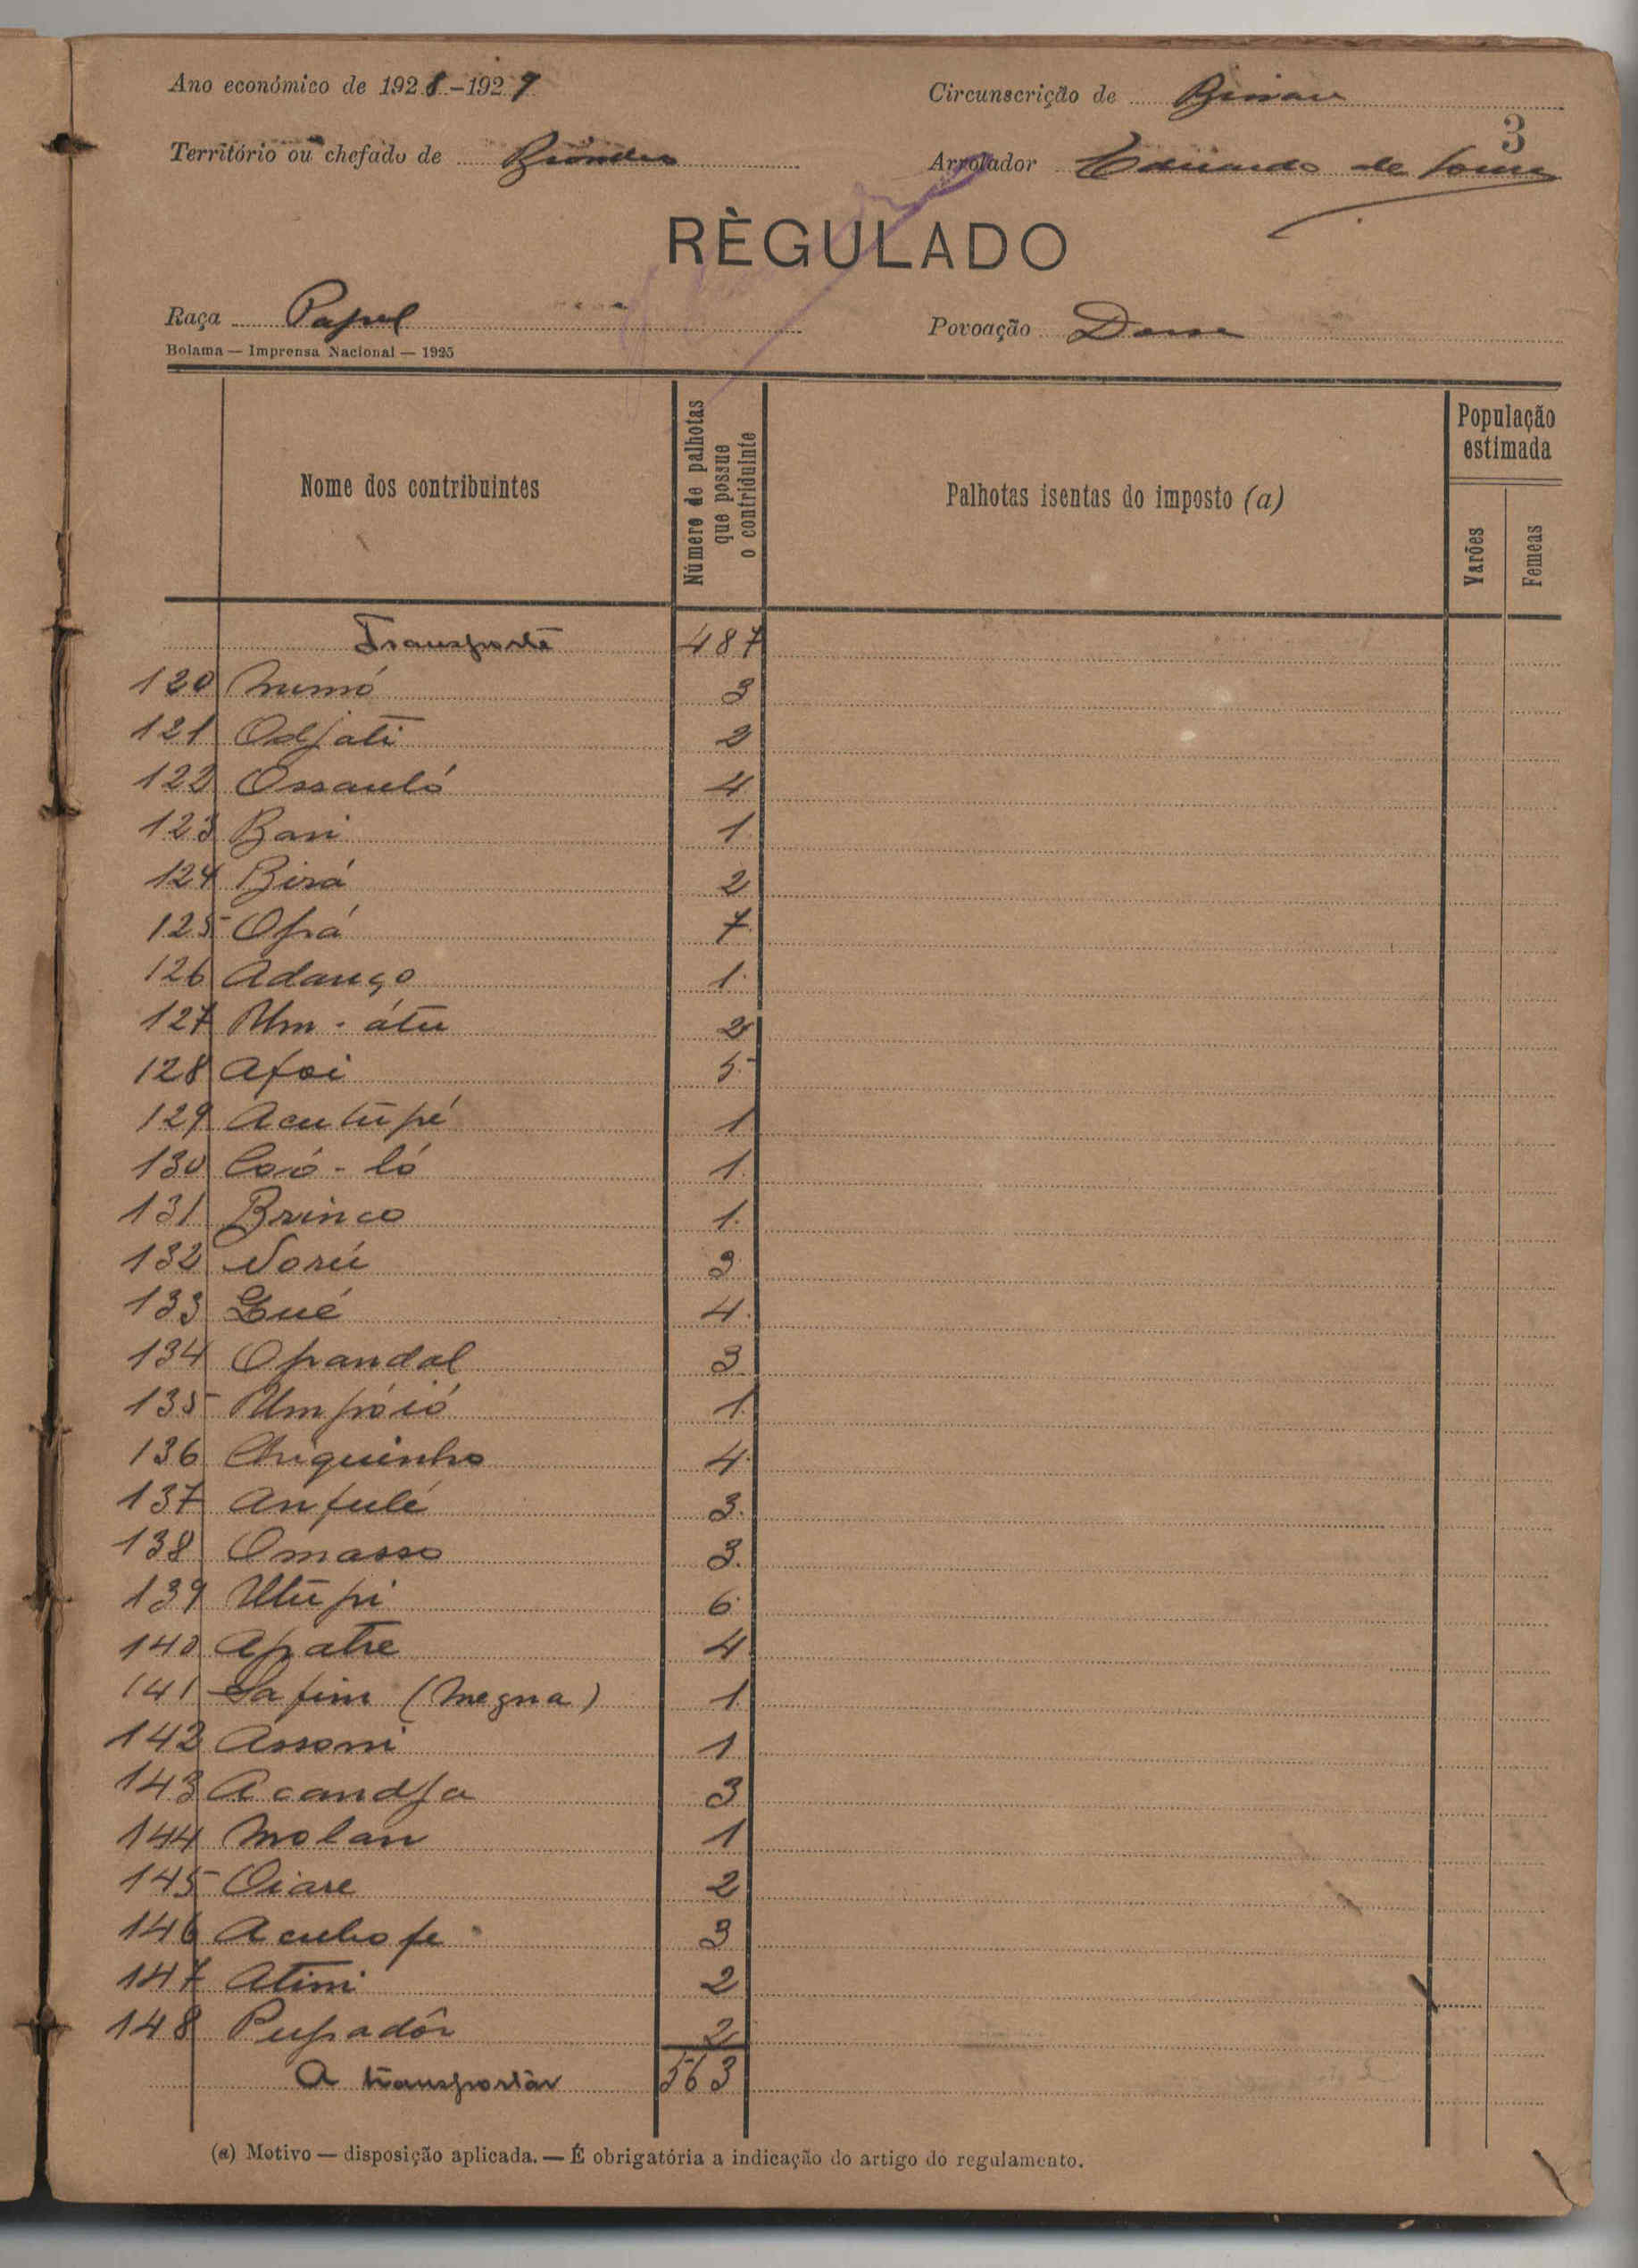 Ano económico de 1928-1929
Circunscrição de Bissau
3
Território ou chefado de Biombo
Arrolador Eduardo de
RÈGULADO
Raça Papel
Povoação
Bolama — Imprensa Nacional — 1925
Nome dos contribuintes
Número de palhotas que possue o contriduinte
Palhotas isentas do imposto (a)
População estimada
Varões
Femeas
Transporte 487
120 Mumó 3
121 Odjati 2
122 Ossauló 4
123 Bari 1
124 Birá 2
125 Opá 7
126 Adanço 1
127 Um-átu 2
128 Afoi 5
129 Acutupé 1
130 Coió-ló 1
131 Brinco 1
132 Norú 3
133 Lué 4
134 Opandal 3
135 Umpóió 1
136 Chiquinho 4
137 Anfulé 3
138 Omasso 3
139 Utupi 6
140 Apatre 4
141 Safim (Megna) 1
142 Assomi 1
143 Acandja 3
144 Molan 1
145 Oiare 2
146 Acubofe 3
147 Atimi 2
148 Pupadôr 2
A transportar 563
(a) Motivo — disposição aplicada. — É obrigatória a indicação do artigo do regulamento.